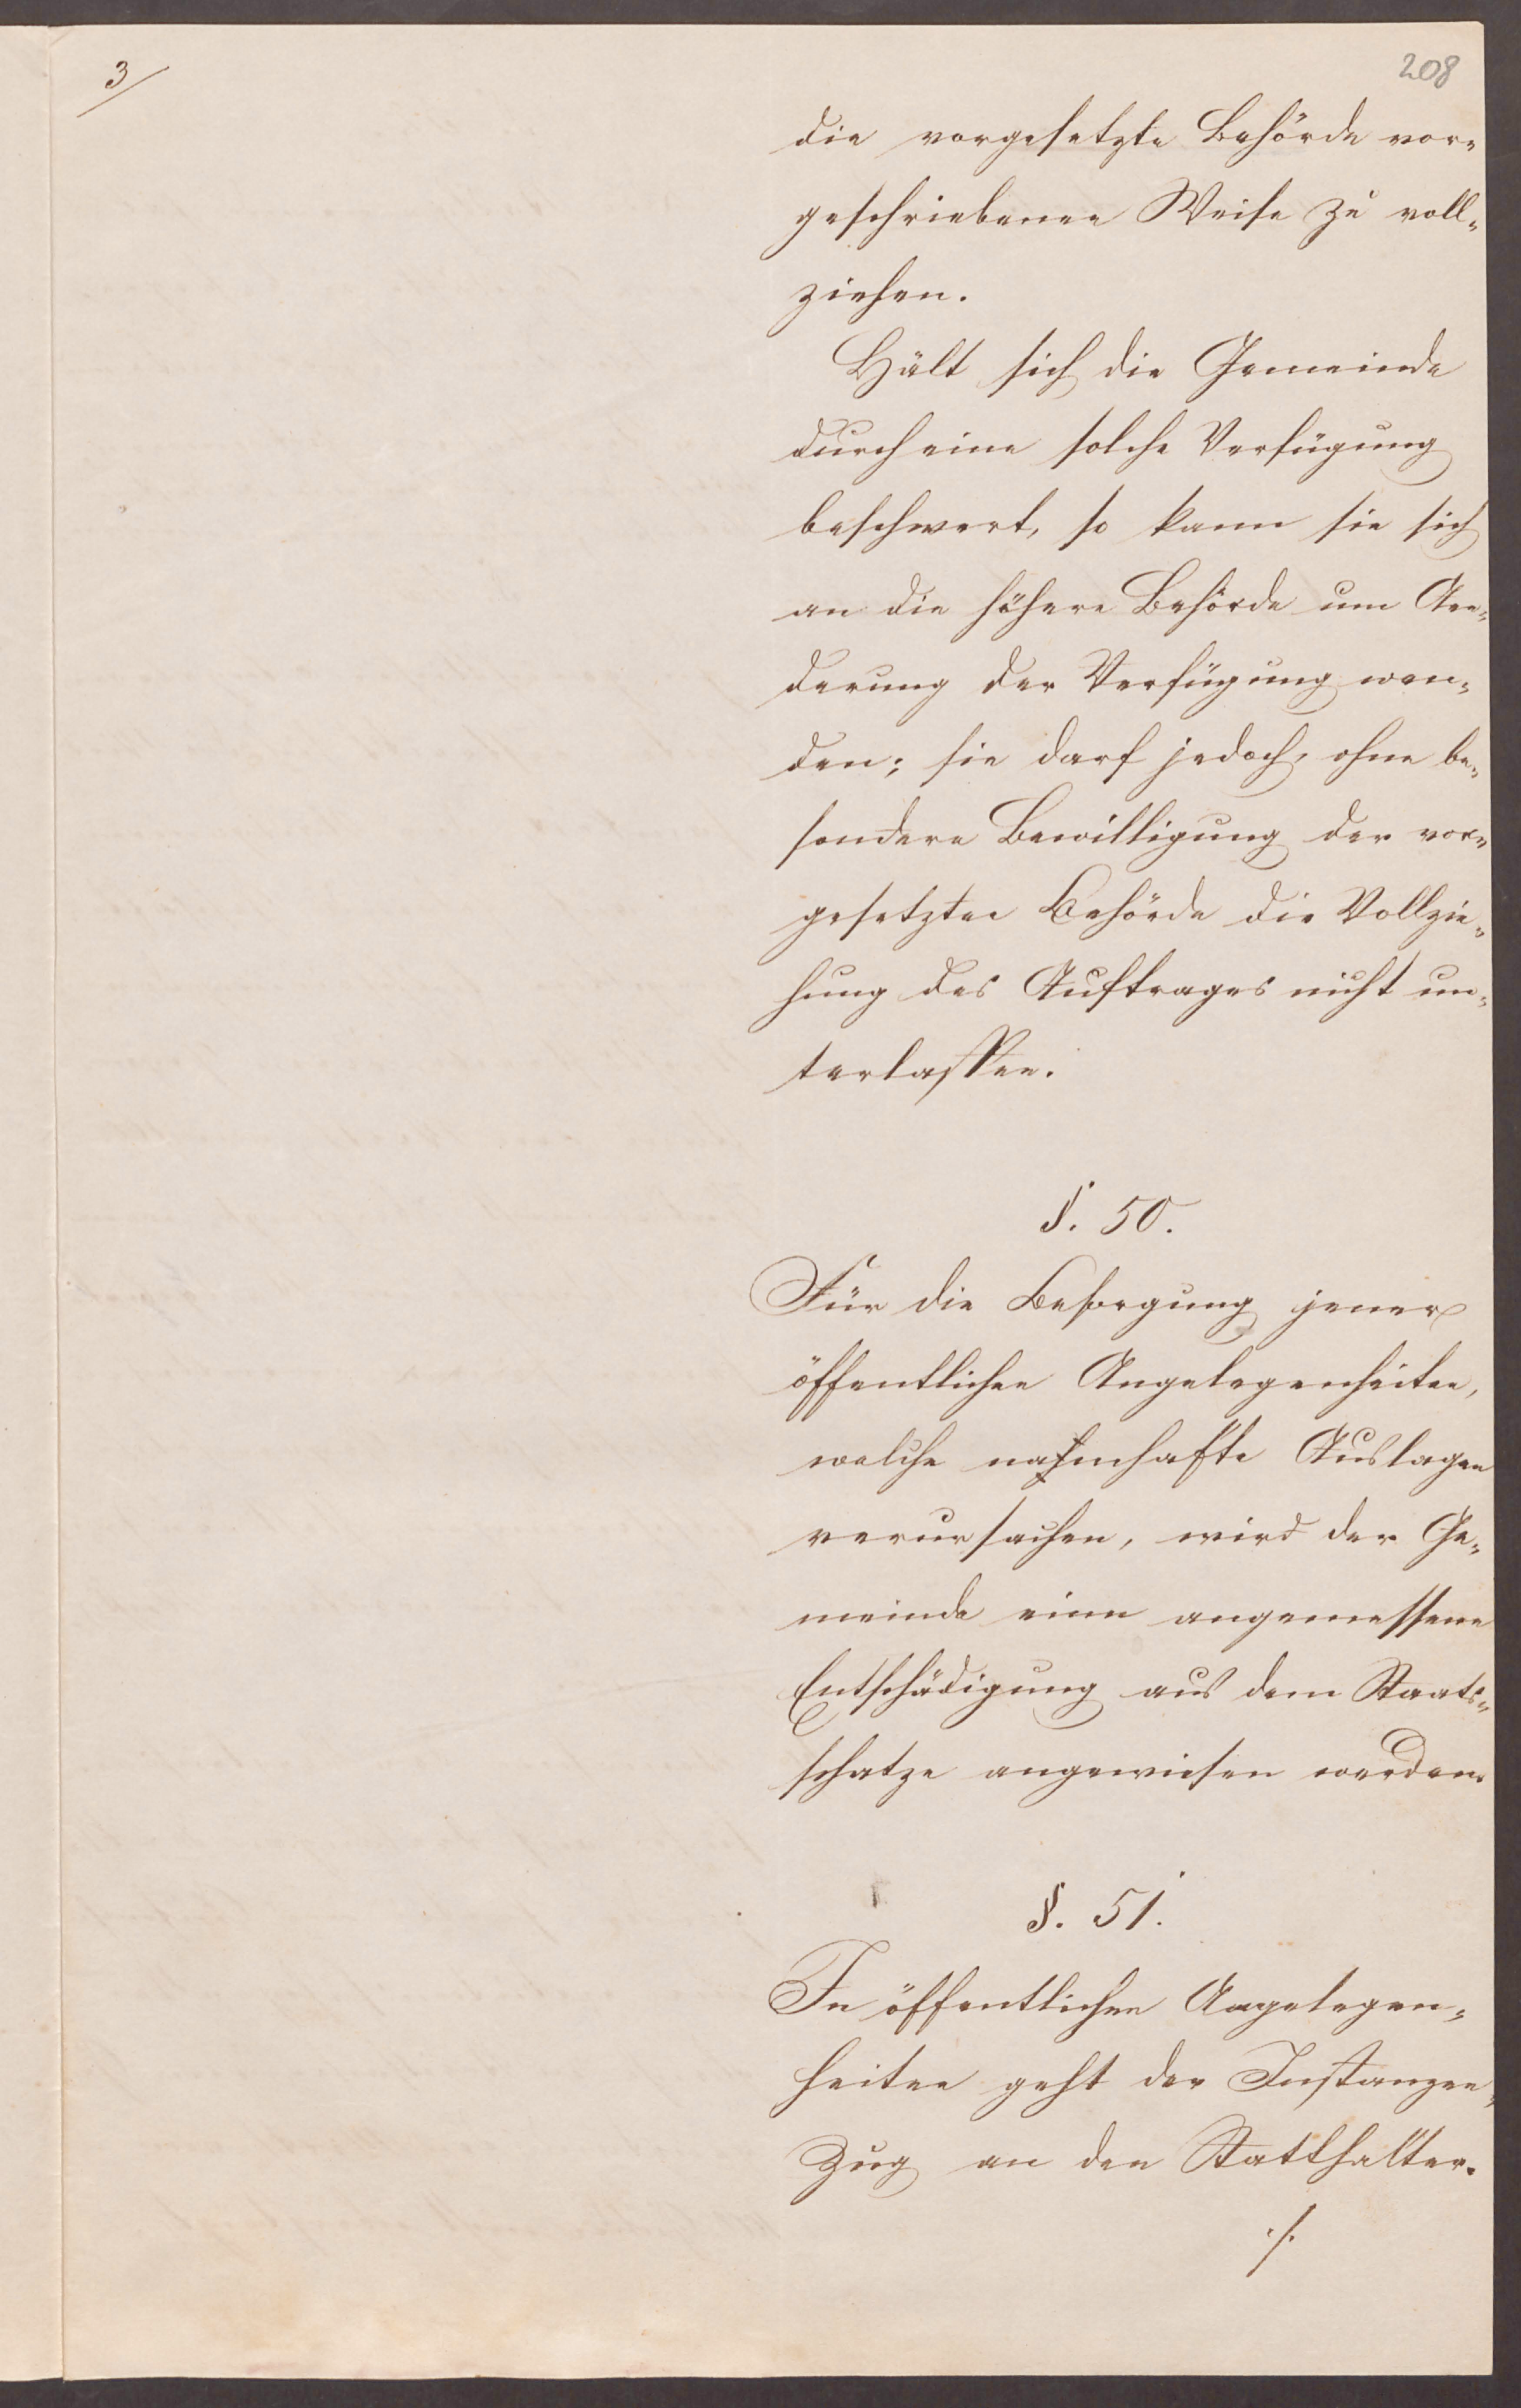 3/
208
die vorgesetzte Behörde vor„
geschriebenen Weise zu voll„
ziehen.
Hält sich die Gemeinde
durch eine solche Verfügung
beschwert, so kann sie sich
an die höhere Behörde um Aen„
derung der Verfügung wen„
den; sie darf jedoch, ohne be„
sondere Bewilligung der vor„
gesetzten Behörde die Vollzie„
hung des Auftrages nicht un„
terlassen.
§. 50.
Für die Besorgung jener
öffentlichen Angelegenheiten,
welche nahmhafte Auslagen
verursachen, wird der Ge„
meinde eine angemessene
Entschädigung aus dem Staats„
schatze angewiesen werden.
§. 51.
In öffentlichen Angelegen„
heiten geht der Instanzen„
Zug an den Statthalter.
./.